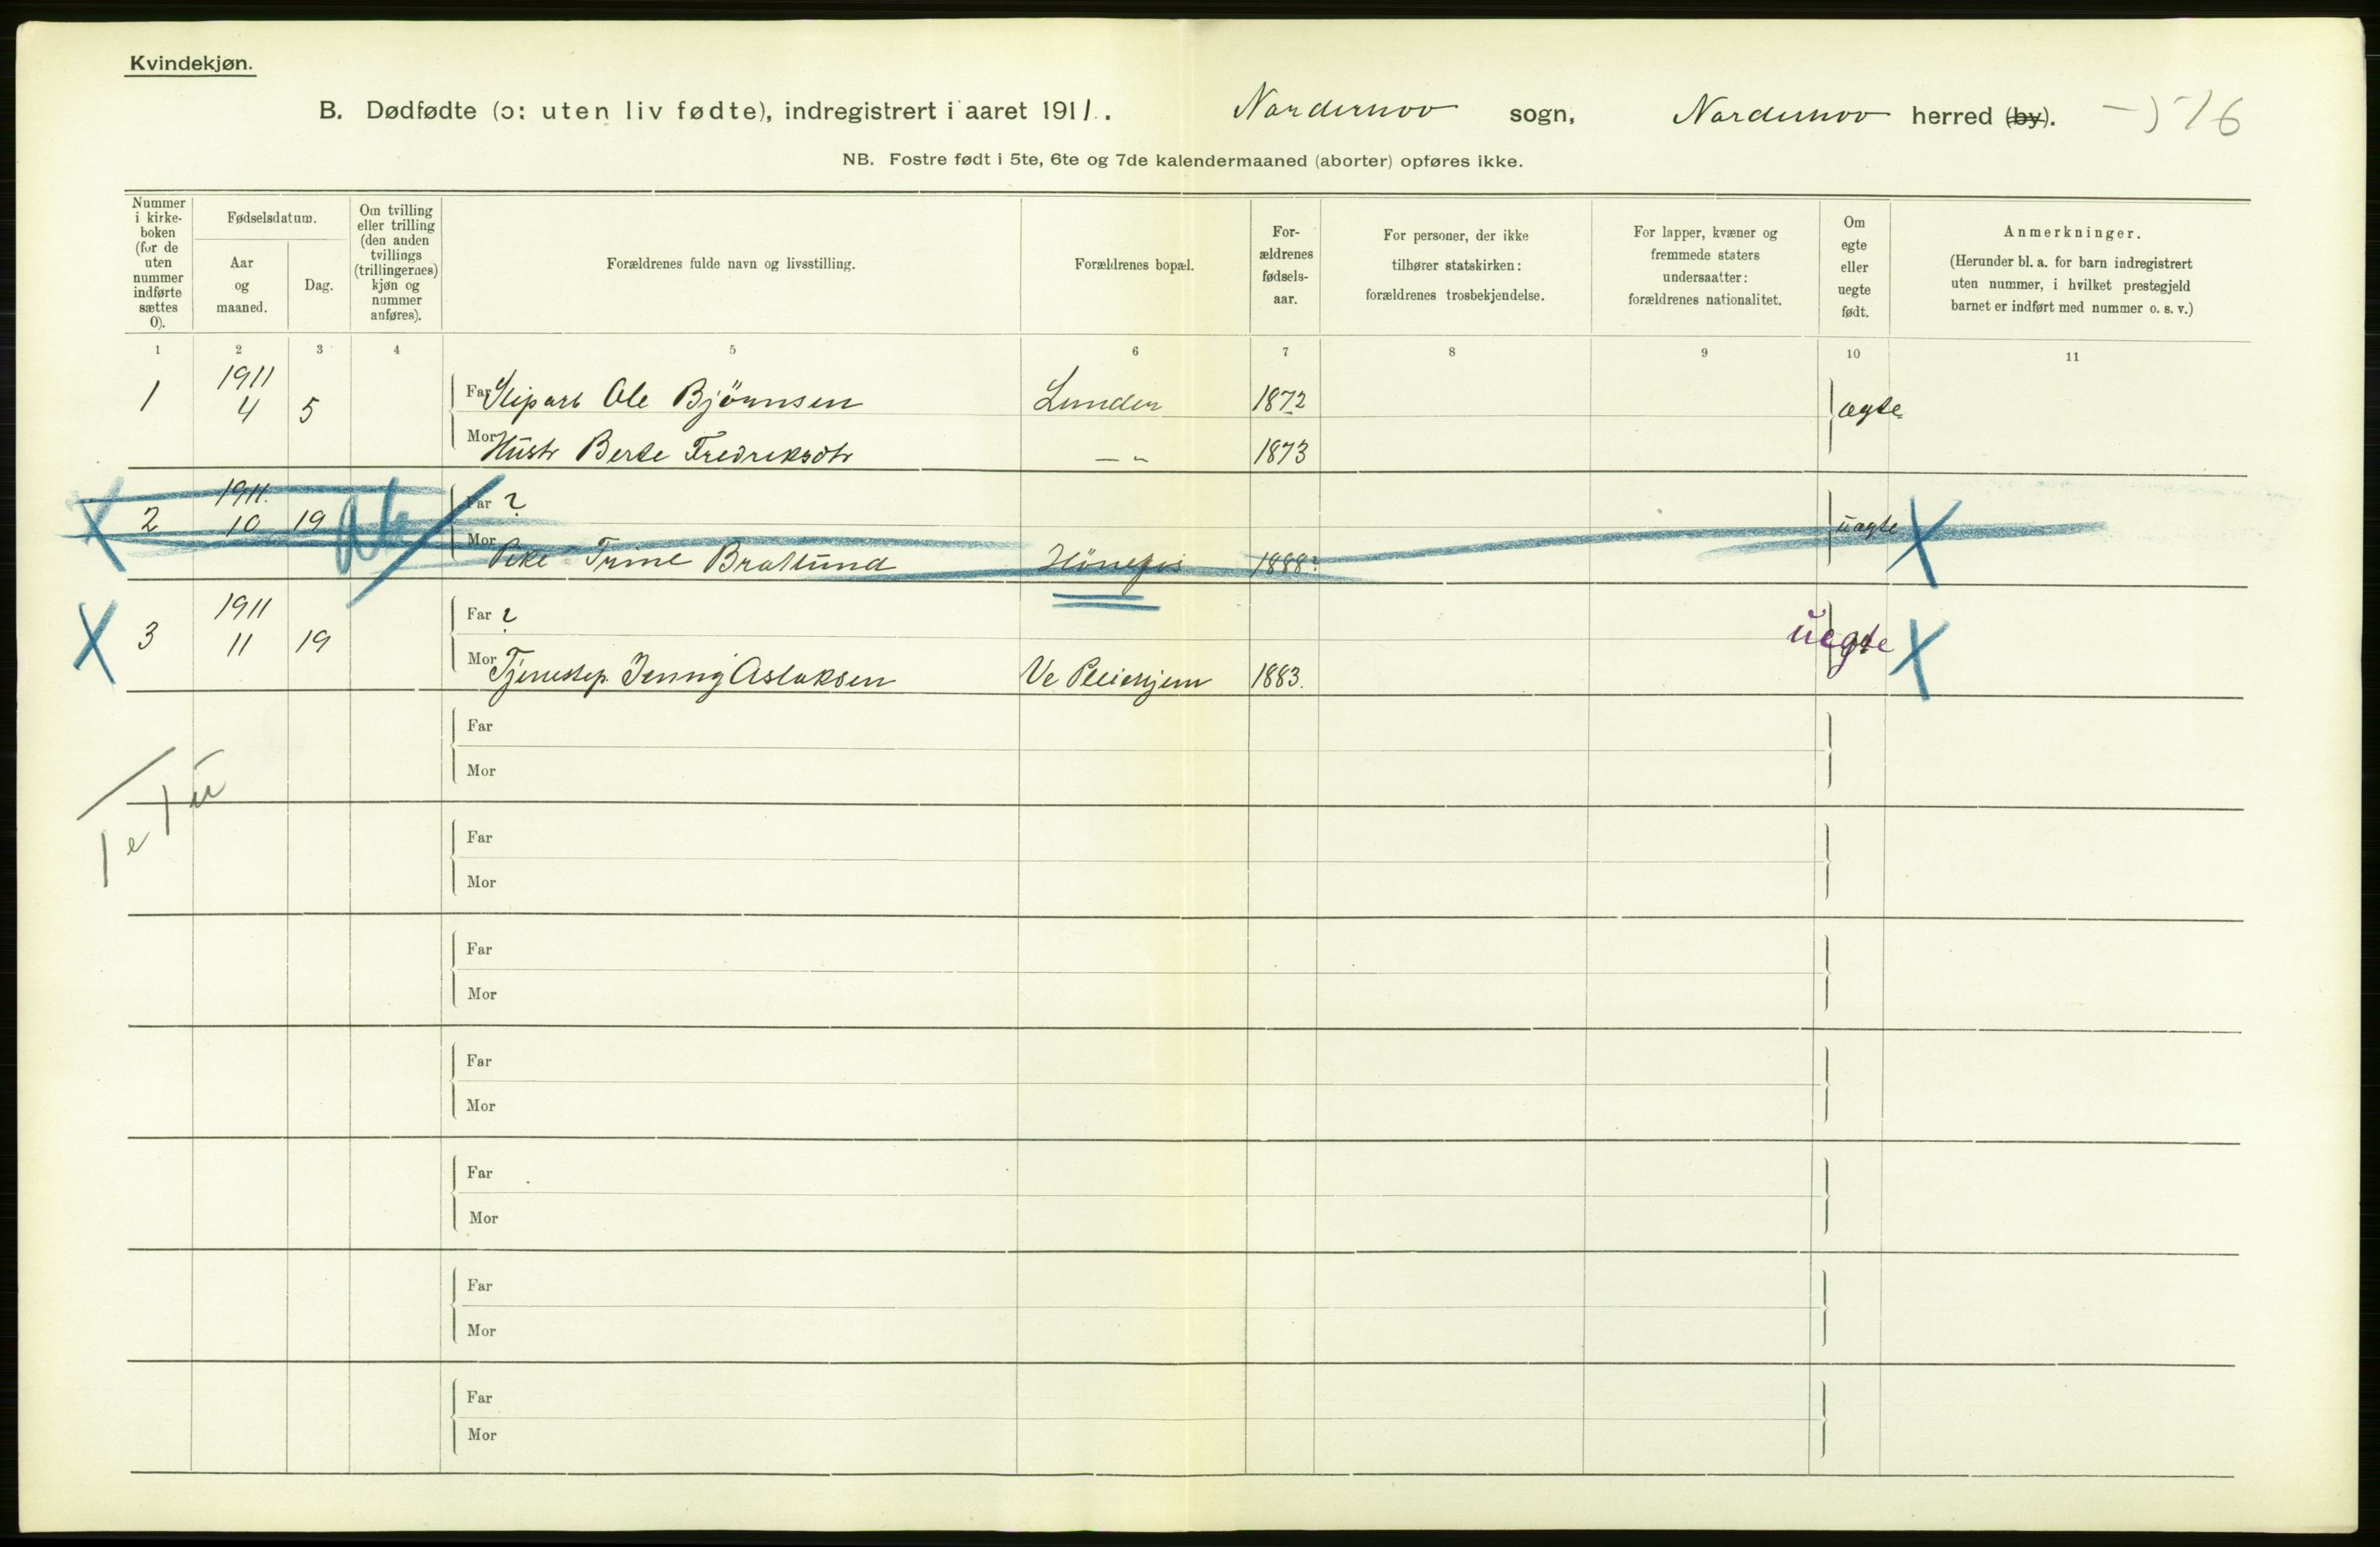 Kvindekjøn.
B. Dødfødte (ɔ: uten liv fødte), indregistrert i aaret 1911. Norderhov sogn, Norderhov herred (by).
NB. Fostre født i 5te, 6te og 7de kalendermaaned (aborter) opføres ikke.
Nummer i kirke-boken (for de uten nummer indførte sættes 0).
Fødselsdatum.
Aar og maaned.
Dag.
Om tvilling eller trilling (den anden tvillings (trillingernes) kjøn og nummer anføres).
Forældrenes fulde navn og livsstilling.
Forældrenes bopæl.
For-ældrenes fødsels-aar.
For personer, der ikke tilhører statskirken: forældrenes trosbekjendelse.
For lapper, kvæner og fremmede staters undersaatter: forældrenes nationalitet.
Om egte eller uegte født.
Anmerkninger.
(Herunder bl. a. for barn indregistrert uten nummer, i hvilket prestegjeld barnet er indført med nummer o. s. v.)
1 2 3 4 5 6 7 8 9 10 11
1 1911 4 5 Far Sliparb Ole Bjørnsen Lunder 1872 ægte
Mor Hustr Berte Fredriksdtr — " 1873
2 1911. 10 19 Far ? uægte
Mor Pike Trine Bratlund Hønefos 1888?
3 1911 11 19 Far ? uegte
Mor Tjenestep. Jenny Aslaksen Ve Pleiehjem 1883.
Far
Mor
1 e 1 u
Far
Mor
Far
Mor
Far
Mor
Far
Mor
Far
Mor
Far
Mor